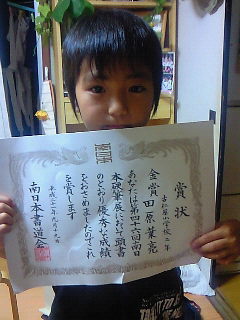 賞状
古仁屋小学校二年
金賞 田原葉亮
あなたは第四十六回南日
本硬筆展において頭書
のとおり優秀な成績
をおさめましたのでこれ
を賞します
平成二十一年九月十三日
南日本書道会